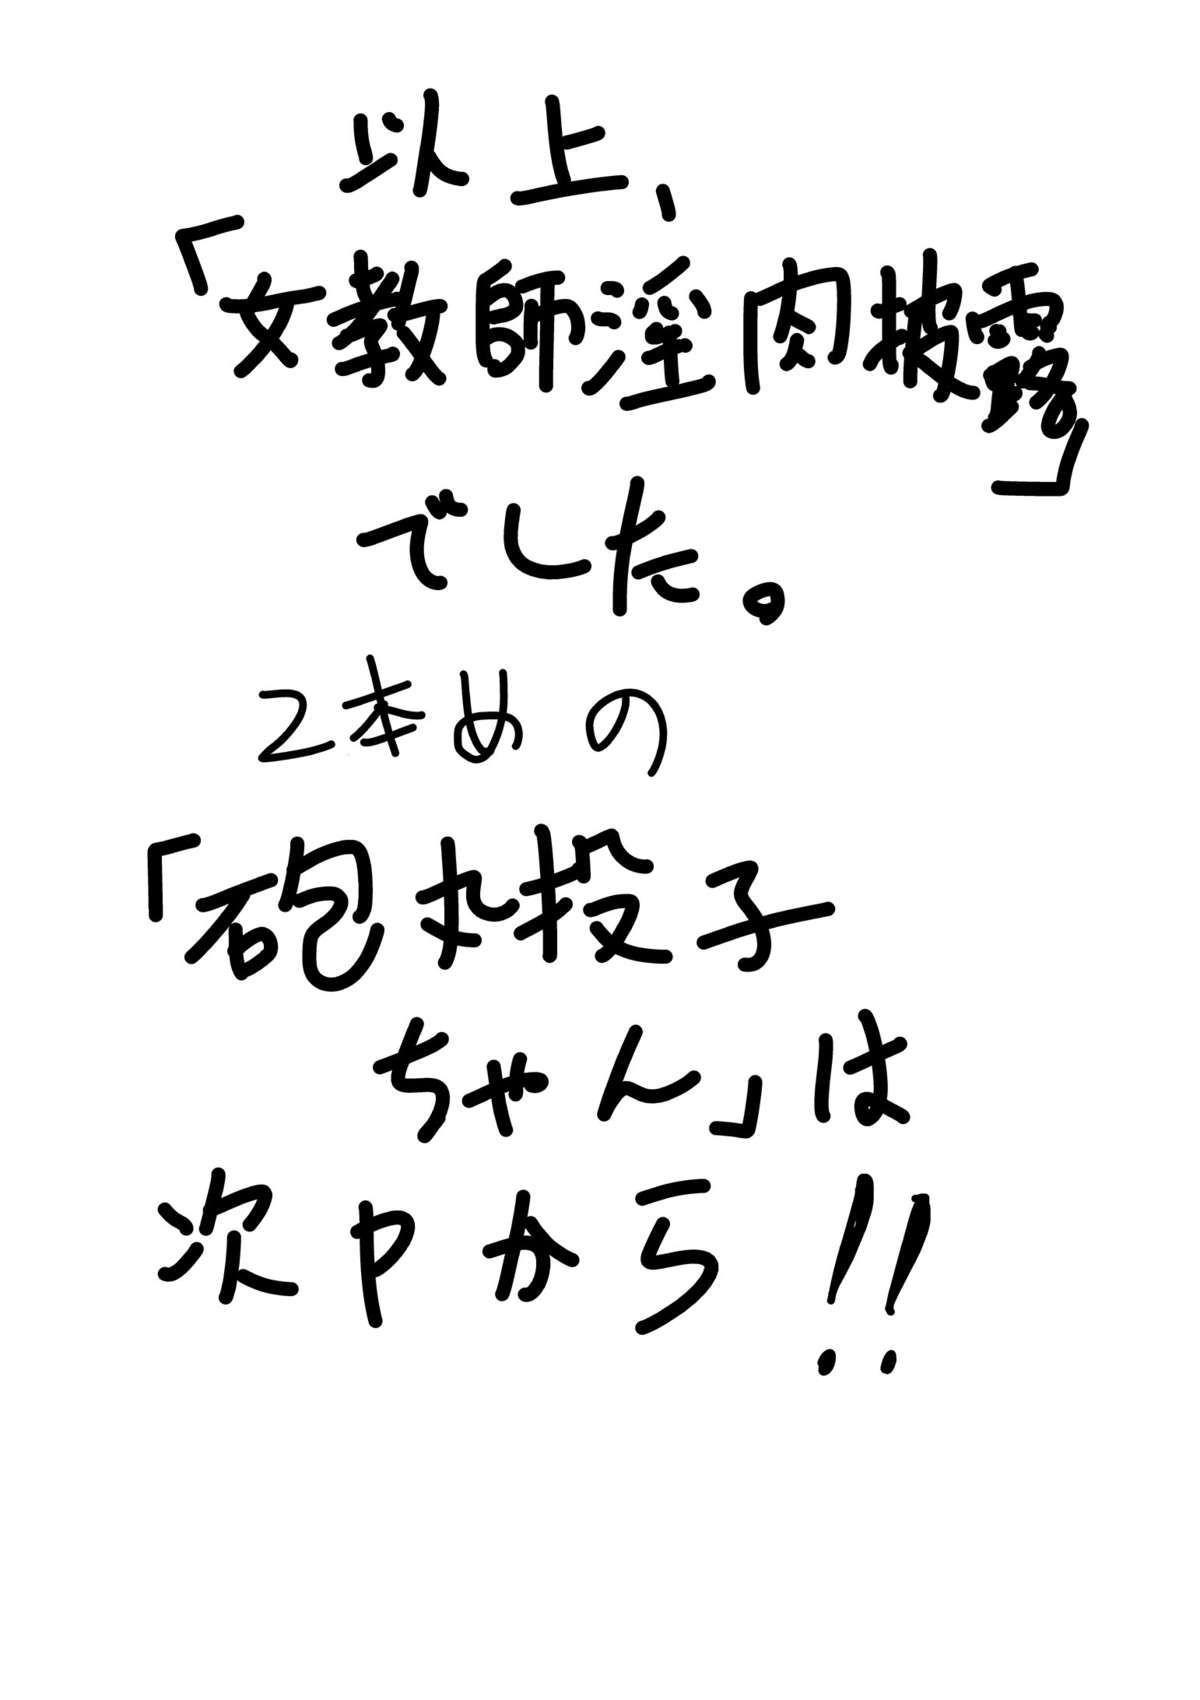 以上、
「女教師淫肉披露」
でした。
2本めの
「砲丸投子
ちゃん」は
次Pから!!